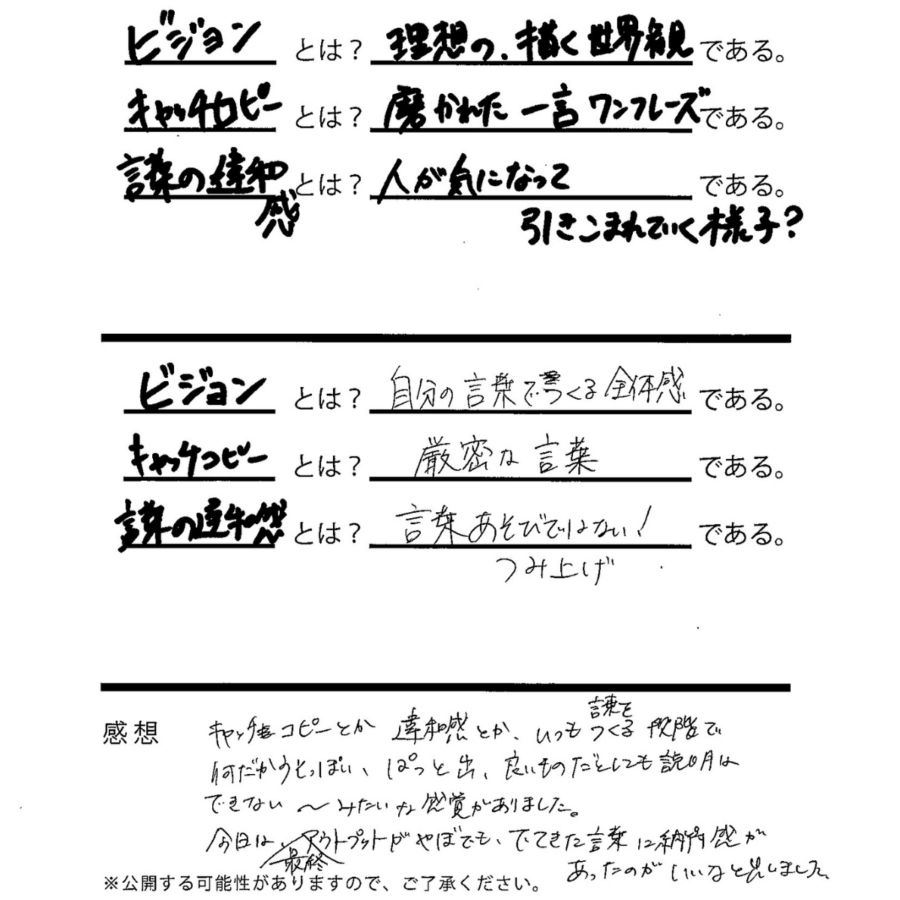 ビジョン とは? 理想の、描く世界観 である。
キャッチコピー とは? 磨かれた 一言 ワンフレーズ である。
言葉の違和感 とは? 人が気になって である。
引きこまれていく様子?
ビジョン とは? 自分の言葉でつくる全体感 である。
キャッチコピー とは? 厳密な言葉 である。
言葉の違和感 とは? 言葉あそびではない! である。
つみ上げ
感想 キャッチコピーとか 違和感とか、いつも言葉をつくる段階で
何だかうそっぽい、ぱっと出、良いものだとしても説明は
できない〜みたいな感覚がありました。
今日は、最終アウトプットがやぼでも、でてきた言葉に納得感が
あったのがいいなと思いました。
※公開する可能性がありますので、ご了承ください。